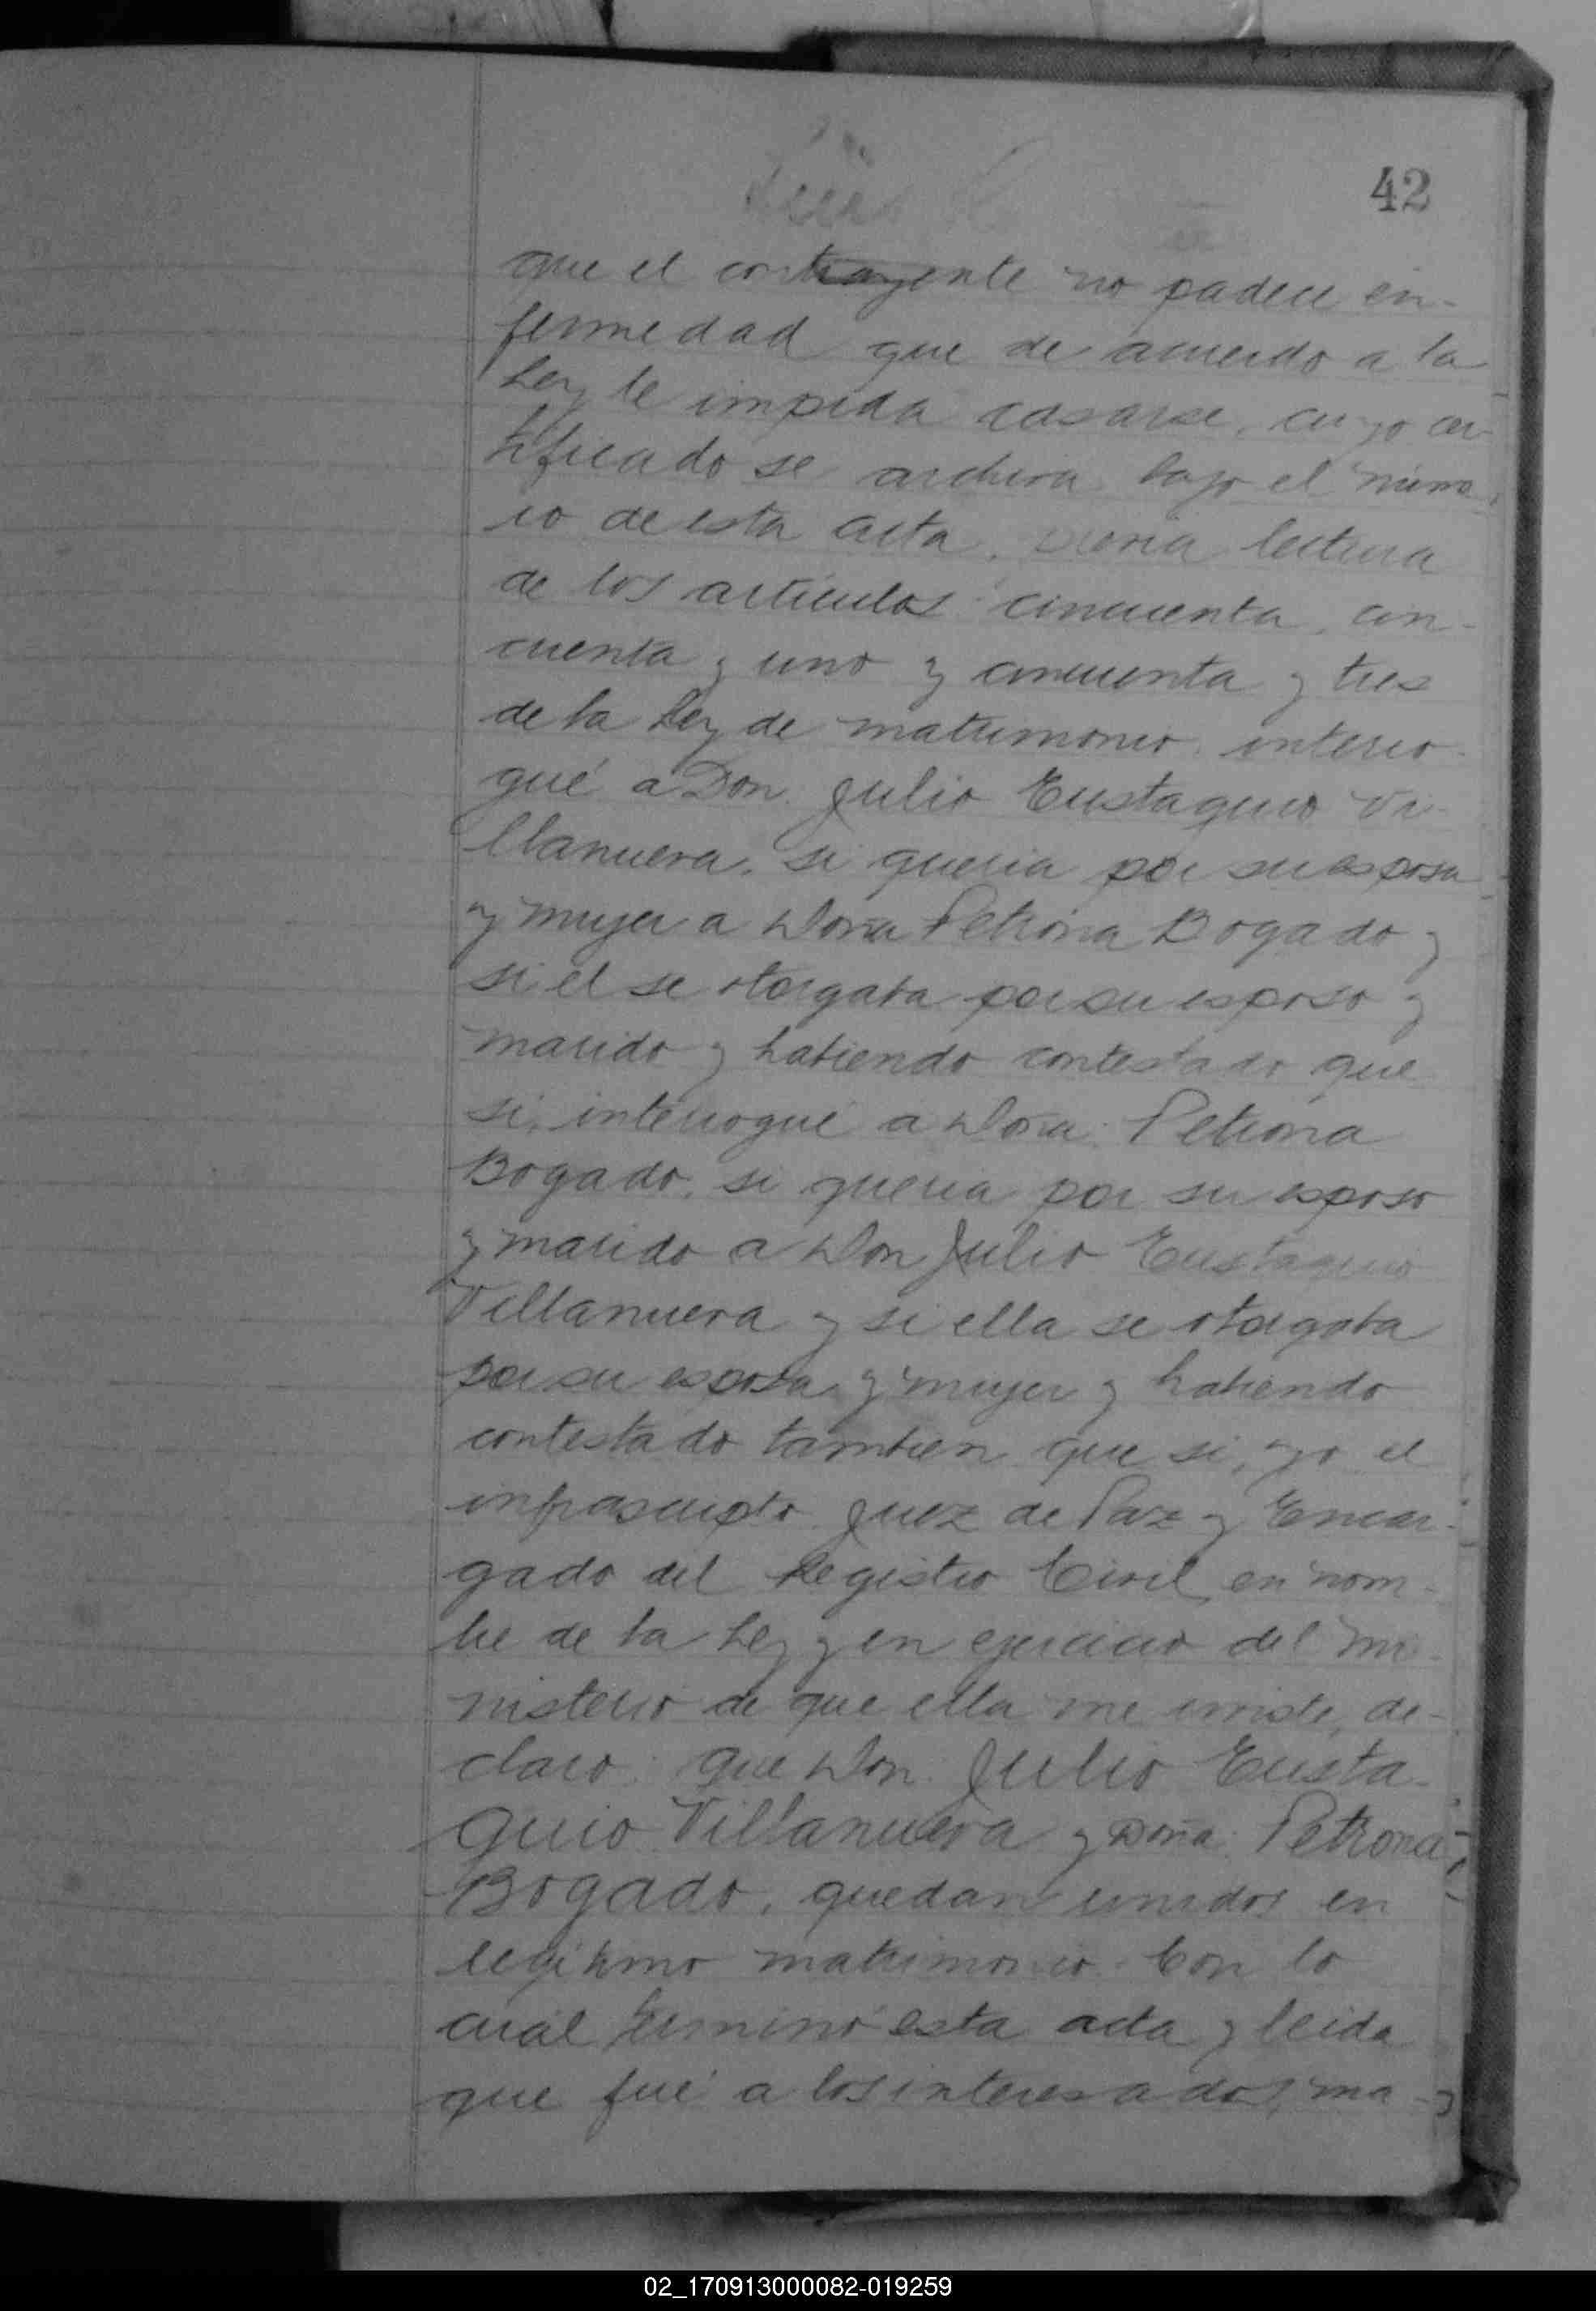 42
que el contrayente no padece en-
fermedad que de acuerdo a la
Ley le impida casarse, cuyo cer-
tificado se archiva bajo el núme-
ro de esta acta, previa lectura
de los artículos cincuenta, cin-
cuenta y uno y cincuenta y tres
de la Ley de matrimonio. interro-
gué a Don Julio Eustaquio Vi-
llanueva, si queria por su esposa
y mujer a Doña Petrona Bogado y
si el se otorgaba por su esposo y
marido y habiendo contestado que
si, interrogué a Doña Petrona
Bogado, si queria por su esposo
y marido a Don Julio Eustaquio
Villanueva y si ella se otorgaba
por su esposa y mujer y habiendo
contestado tambien que si, yo el
infrascripto Juez de Paz y Encar-
gado del Registro Civil, en nom-
bre de la Ley y en ejercicio del mi-
nisterio de que ella me inviste, de-
claro: que Don Julio Eusta-
quio Villanueva y Doña Petrona
Bogado, quedan unidos en
legitimo matrimonio. Con lo
cuál terminó esta acta y leida
que fué a los interesados, ma-
02_170913000082-019259